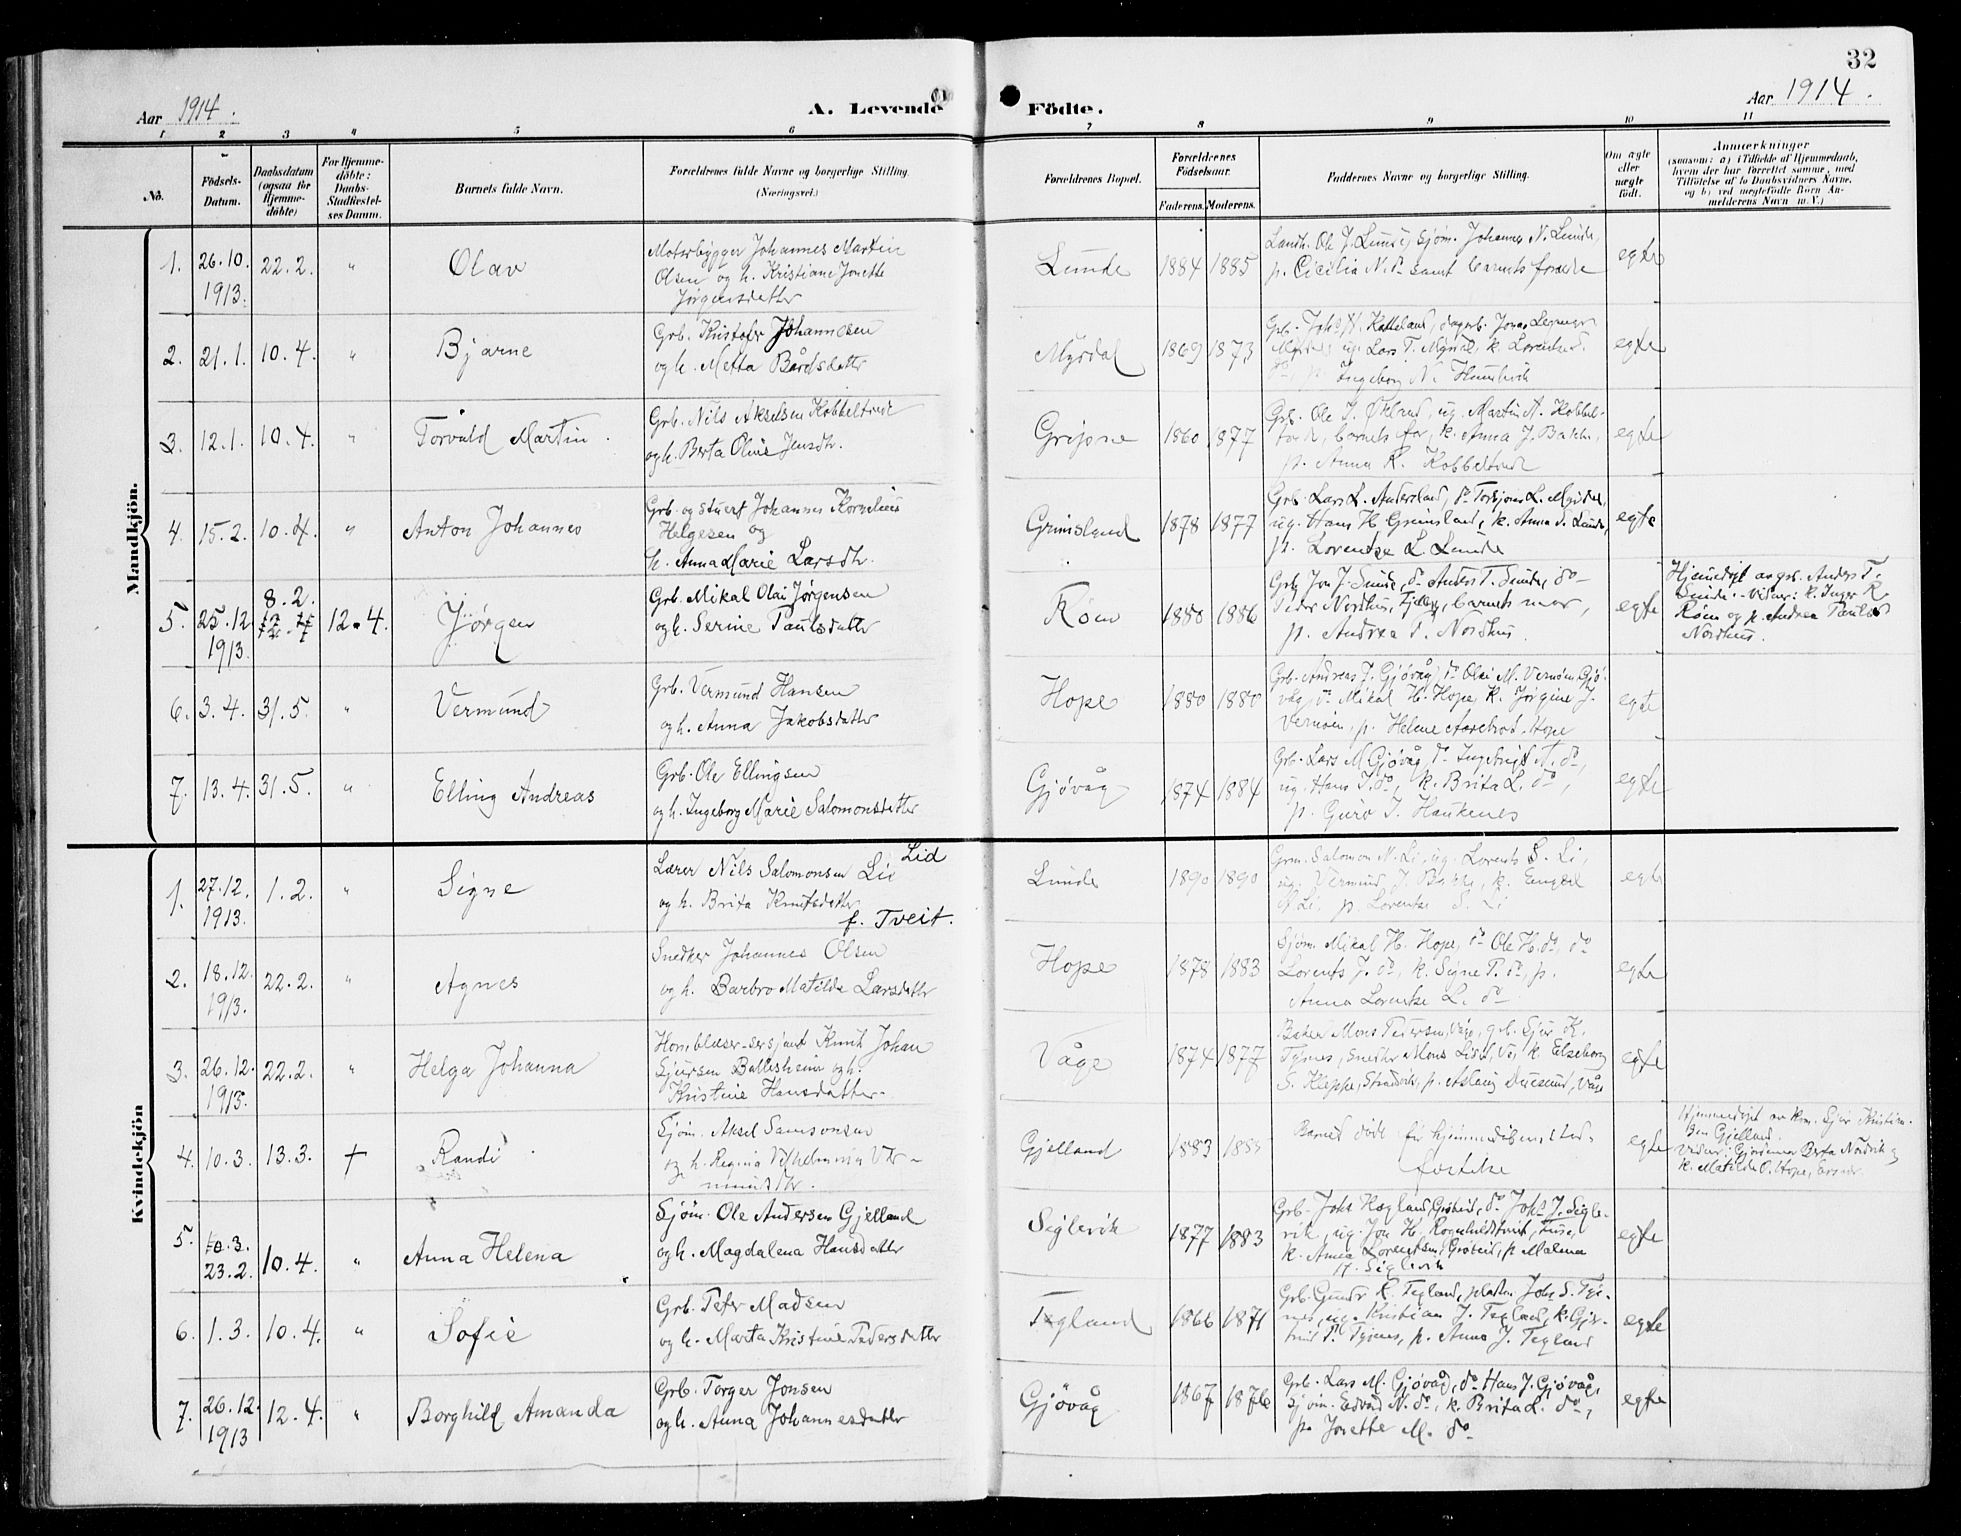 32
Aar 1914.
A. Levende Födte.
Aar 1914.
1 2 3 4 5 6 7 8 9 10 11
No.
Födsels-Datum.
Daabsdatum (ogsaa for Hjemme-döbte)
For Hjemme-döbte: Daabs-Stadfæstel-ses Datum.
Barnets fulde Navn.
Forældrenes fulde Navne og borgerlige Stilling.
(Næringsvei.)
Forældrenes Bopæl.
Forældrenes Födselsaar.
Faderens. Moderens.
Faddernes Navne og borgerlige Stilling.
Om ægte eller uægte födt.
Anmærkninger
(saasom: a) i Tilfælde af Hjemmedaab,
hvem der har forrettet samme, med
Tilföielse af to Daabsvidners Navne,
og b) ved uægtefödte Börn An-
melderens Navn m. V.)
Mandkjön.
1. 26.10. 1913. 22.2. " Olav
Motorbygger Johannes Martin
Olsen og h. Kristiane Jonette
Jørgensdatter
Lunde 1884 1885
Landh. Ole J. Lunde, sjøm. Johannes N. Lunde,
p. Cicilia N. do samt barnets forældre
egte
2. 21.1. 10.4. " Bjarne
Grb. Kristofer Johannesen
og h. Metta Bårdsdatter
Mysdal 1869 1873
ug. Lars T. Mysdal, k. Lorentse
p. Ingeborg N.
egte
3. 12.1. 10.4. " Torvald Martin.
Grb. Nils Akselsen Kobbeltvedt
og h. Berta Oline Jensdtr.
Gripne 1860 1877
Grb. Ole J. Økland, ug. Martin A. Kobbel-
tvedt, barnets far, k. Anna J. Bakke,
p. Anna K. Kobbeltvedt
egte
4. 15.2. 10.4. " Anton Johannes
Grb. og stuert Johannes Kornelius
Helgesen og
h. Anna Marie Larsdtr.
Grimsland 1878 1877
Grb. Lars L. Andersland, do Torbjørn L. Mysdal,
ug. Hans H. Grimsland, k. Anna S. Lunde,
p. Lorentse L. Lunde
egte
5. 25.12. 1913. 8.2. 12.4. Jørgen
Grb. Mikal Olai Jørgensen
og h. Serine Paulsdatter
Røm 1880 1886
Grb. Jon J. Sunde, do Anders T. Sunde, do
Peder Nordhus, Fjelberg, barnets mor,
p. Andrea P. Nordhus.
egte
Hjemmedøpt av grb. Anders T.
Sunde. - Vidner: k. Inger K.
Røm og p. Andrea Paulsd
Nordhus.
6. 3.4. 31.5. " Vermund
Grb. Vermund Hansen
og h. Anna Jakobsdatter
Hope 1880 1880
Grb. Andreas J. Gjøvåg, do Olai M. Vernøen, Gjø-
våg, do Mikal H. Hope, k. Jørgine J.
Vernøen, p. Helene Hope
egte
7. 13.4. 31.5. " Elling Andreas
Grb. Ole Ellingsen
og h. Ingeborg Marie Salomonsdatter
Gjøvåg 1874 1884
Grb. Lars M. Gjøvåg, do Ingebrigt N. do,
ug. Hans J. do, k. Brita L. do,
p. Guro J. Haukenes
egte
Kvindekjön
1. 27.12. 1913. 1.2. " Signe
Lærer Nils Salomonsen Lii Lid
og h. Brita Knutsdatter
f. Tveit.
Lunde 1890 1890
Grm. Salomon N. Li, ug. Lorents S. Li,
ug. Vermund J. Bakke, k. Engel
Li, p. Lorentse S. Li
egte
2. 18.12. 1913. 22.2. " Agnes
Snedker Johannes Olsen
og h. Barbro Matilde Larsdatter
Hope 1878 1883
Sjøm. Mikal H. Hope, do Ole H. do, do
Lorents J. do, k. Signe P. do, p.
Anna Lorentse L. do
egte
3. 26.12. 1913. 22.2. " Helga Johanna
Hornblæser-sersjant Knut Johan
Sjursen Ballesheim og h.
Kristine Hansdatter.
Våge 1874 1877
Baker Mons Pedersen, Våge, grb. Sjur K.
Tyrnes, snedker Mons Lisd, Vå, k. Elseborg
S. Kleppe, Strandvik, p. Aslaug Duesund, Våge
egte
4. 10.3. 13.3. † Randi
Sjøm. Aksel Samsonsen
og h. Regina Vilhelmina Ver-
mundsdtr.
Gjelland 1883
Barnet døde før hjemmedåpen stad-
fæstedes
egte
Hjemmedøpt av km. Sjur Kristian-
sen Gjelland.
Vidner: Gjordemor Berta Nordvik og
k. Matilde O. Hope,
5. 10.3. 23.2. 10.4. " Anna Helena
Sjøm. Ole Andersen Gjelland
og h. Magdalena Hansdatter
Siglevik 1877 1883
Grb. Johs Hægland, do Johs J. Sigle-
vik, ug. Jon H. Rognholdstveit, Fuse,
k. Anna Lorentsen, p. Malena
Siglevik
egte
6. 1.3. 10.4. " Sofie
Grb. Peter Madsen
og h. Marta Kristine Pedersdatter
Tegland 1866 1871
Grb. Gunder K. Tegland, pladsm. Johs S. Ty-
nes, ug. Kristian J. Tegland, k. Gjer-
trud P. Tyrnes, p. Anna J. Tegland
egte
7. 26.12. 1913 12.4. " Borghild Amanda
Grb. Torger Jonsen
og h. Anna Johannesdatter
Gjøvåg 1867 1876
Grb. Lars M. Gjøvåg, do Hans J. Gjøvåg,
sjøm. Edvard N. do, k. Brita L. do,
p. Josette M. do
egte